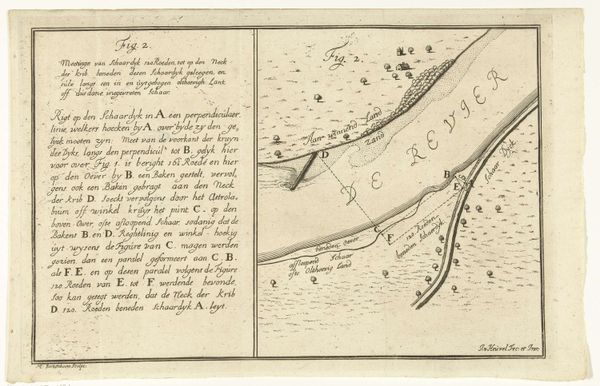 Fig 2.
Meetinge van Schaardyk 120 Roeden, tot op den Neck
der krib beneden dezen Schaardyk gelegen, en
zulx langs een in en uytgebogen oltheerigh Lant
off die door ingevreten Schaar.
Rigt op den Schaardyk in A. een perpendiculaer
linie, welkers hoecken by A. over byde zyden ge,
lyk mooten zyn; Meet van de voorkant der kruyn
der Dyke, langs den perpendicul tot B. gelyk hier
voor over Fig 1. is beright 16½ Roede en hier
op den Oever by B. een Baken gestelt, vervol,
gens ook een Baken gebragt aan den Neck
der krib D. Soeckt vervolgens door het Astrola,
bium off winkel kruys het punt C. op den
boven Oever, ofte afloopend Schaar, sodanig dat de
Bakens B. en D. Reghtlinig en winkel hoekig
uyt wyzens de Figuire van C. mogen werden
gezien, dan een parallel geformeert aan C. B.
als F. E. en op dezen parallel volgens de Figure
120 Roeden van E. tot F werdende bevonden,
soo kan gezegt werden, dat de Neck der Krib
D. 120. Roeden beneden Schaardyk A. leyt.
Fig 2.
Aan winnend Land
Zand
DE REVIER
D
B
E
A
Schaar Dyck
C
F
120 Roeden
beneden Schaardyk
beneden oever
afloopend Schaar
ofte Oltheerig Land